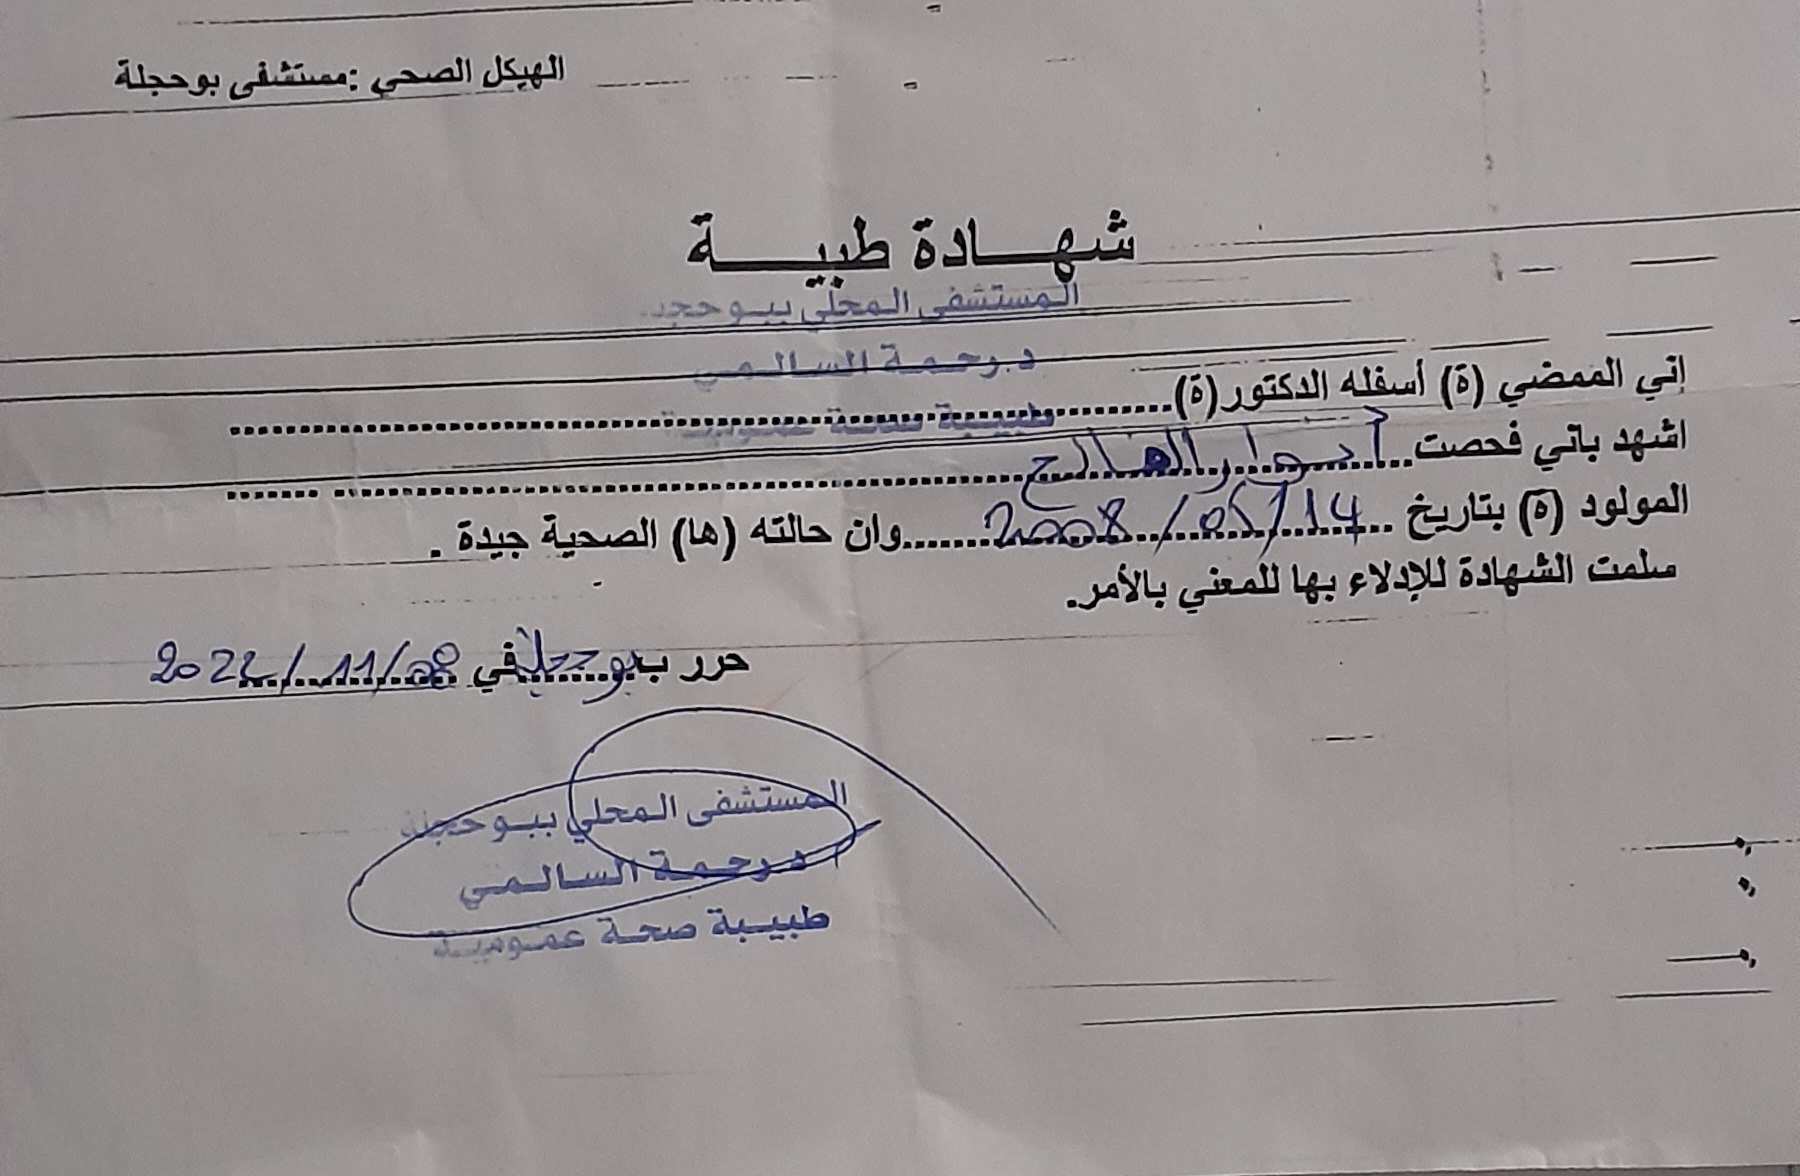 الهيكل الصحي :مستشفى بوحجلة
شهـــادة طبيـــة
المستشفى المحلي ببوحجلة
د.رحمة السالمي
إني الممضي (ة) أسفله الدكتور(ة)
طبيبة صحة عمومية
اشهد باني فحصت
المولود (ة) بتاريخ 14/05/2008 وان حالته (ها) الصحية جيدة .
سلمت الشهادة للإدلاء بها للمعني بالأمر.
حرر ب بوحجلة في 08/11/2022
المستشفى المحلي ببوحجلة
د.رحمة السالمي
طبيبة صحة عمومية